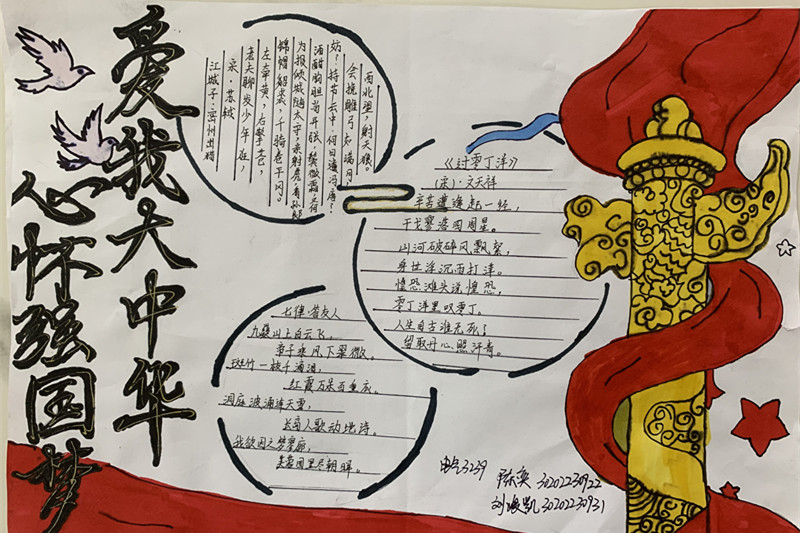 爱我大中华
心怀强国梦
江城子·密州出猎
宋·苏轼
老夫聊发少年狂,
左牵黄,右擎苍,
锦帽貂裘,千骑卷平冈。
为报倾城随太守,亲射虎,看孙郎
酒酣胸胆尚开张,鬓微霜,又何
妨!持节云中,何日遣冯唐?
会挽雕弓如满月,
西北望,射天狼。
《过零丁洋》
(宋)·文天祥
辛苦遭逢起一经,
干戈寥落四周星。
山河破碎风飘絮,
身世浮沉雨打萍。
惶恐滩头说惶恐,
零丁洋里叹零丁。
人生自古谁无死?
留取丹心照汗青。
七律·答友人
九嶷山上白云飞,
帝子乘风下翠微。
斑竹一枝千滴泪,
红霞万朵百重衣。
洞庭波涌连天雪,
长岛人歌动地诗。
我欲因之梦寥廓,
芙蓉国里尽朝晖。
3239
30202230922
30202230931